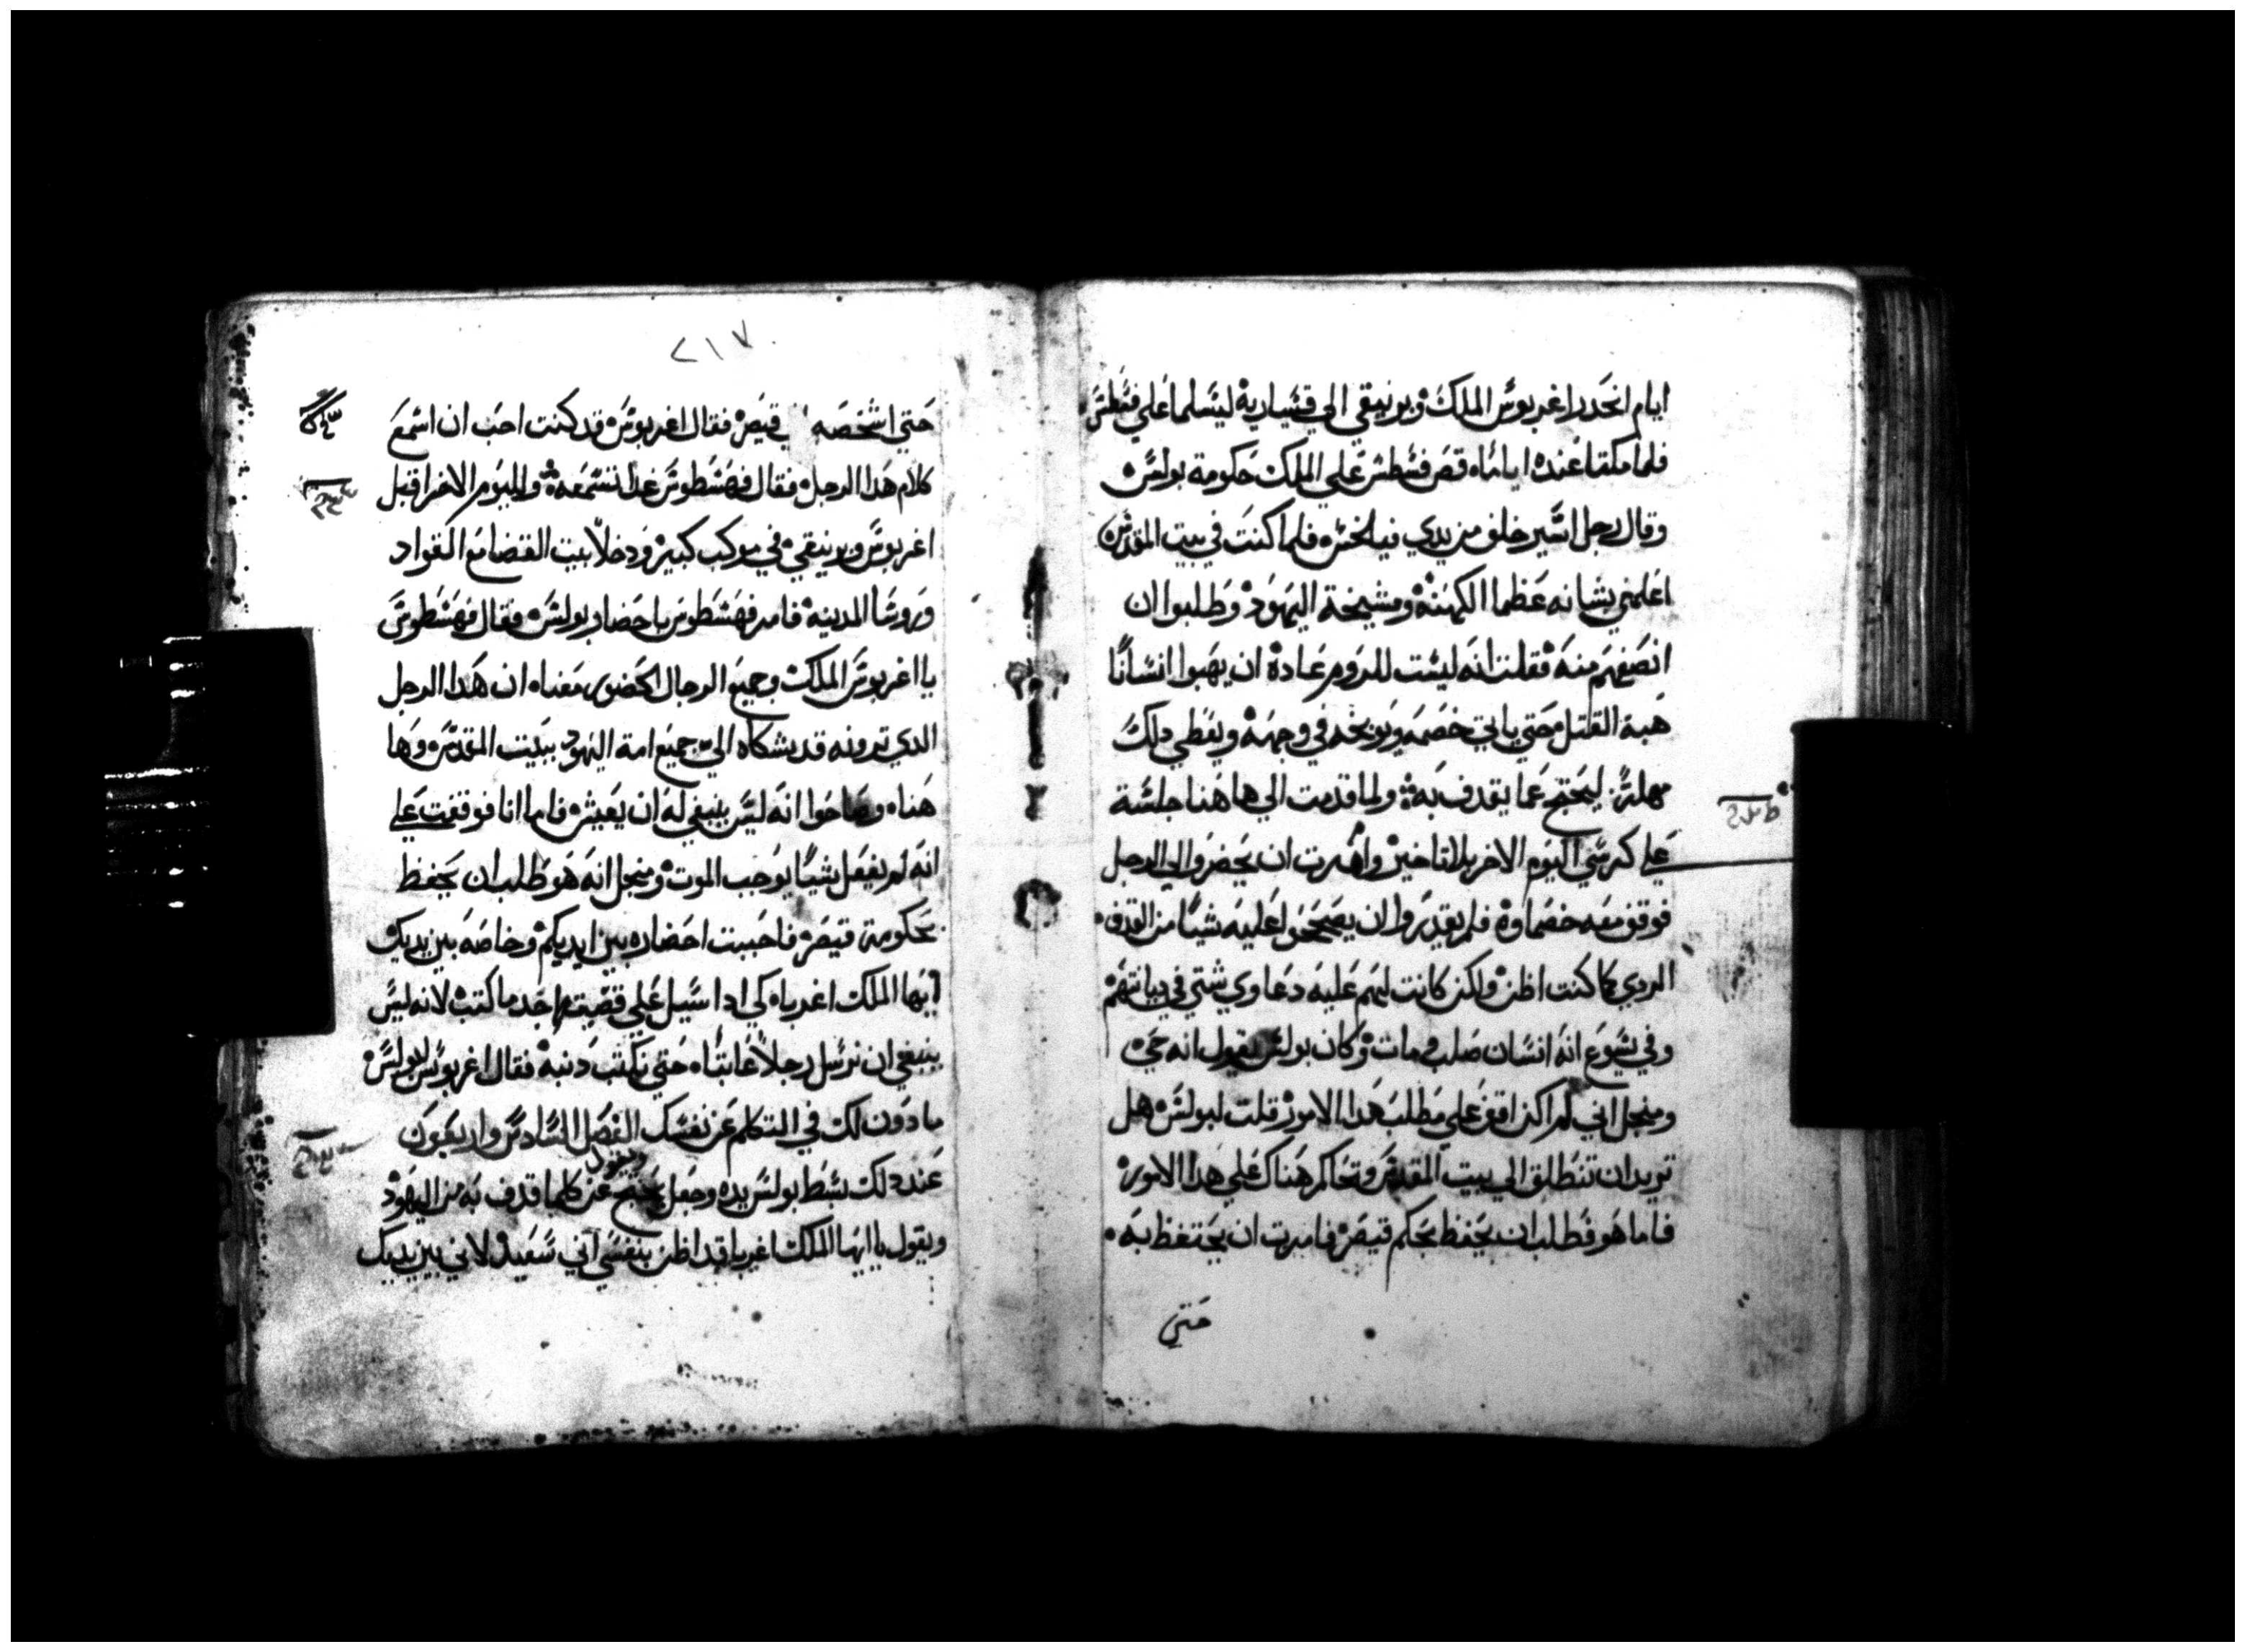 ايام انحدر اغربوس الملك وبرنيقي الي قيسارية ليسلما علي فسطس
فلما مكثا عنده اياما قص فسطس علي الملك حكومة بولس
وقال رجل اسير خلف من يدي فيلخس فلما كنت في بيت المقدس
اعلمني بشانه عظما الكهنة ومشيخة اليهود وطلبوا ان
انصفهم منه فقلت انه ليست للروم عادة ان يهبوا انسانا
هبة القتل حتي ياتي خصمه ويوبخه في وجهه ويعطي دلك
مهلة ليحتج عما يقدف به ولما قدمت الي هاهنا جلست
علي كرسي اليوم الاخر بلا تاخير وامرت ان يحضروا الي الرجل
فوقف معه خصماوه فلم يقدروا ان يصححوا عليه شيا من القدف
الردي كما كنت اظن ولكن كانت لهم عليه دعاوي شتي في ديانتهم
وفي يشوع انه انسان صلب ومات وكان بولس يقول انه حي
ومنجل اني لم اكن اقف علي مطلب هدا الامور قلت لبولس هل
تريد ان تنطلق الي بيت المقدس وتحاكم هناك علي هدا الامور
فاما هو فطلب ان يحفظ بحكم قيصر فامرت ان يحتفظ به
حتي
٢١٧
حتي اشخصه قيصر فقال اغربوس قد كنت احب ان اسمع
كلام هدا الرجل فقال فهسطوس غدا تسمعه واليوم الاخر اقبل
اغربوس وبرنيقي في موكب كبير ودخلا بيت القضا مع القواد
وروسا المدينة فامر فهسطوس باحضار بولس فقال فهسطوس
يا اغربوس الملك وجميع الرجال الحضور معنا ان هدا الرجل
الدي ترونه قد يشكاه الي جميع امة اليهود ببيت المقدس وها
هنا وصاحوا انه ليس ينبغي له ان يعيش فاما انا فوقفت علي
انه لم يفعل شيا يوجب الموت ومنجل انه هو طلب ان يحفظ
بحكومة قيصر فاحببت احضاره بين ايديكم وخاصه بين يديك
ايها الملك اغرباه كي ادا سيل علي قضيته اجد ما اكتب لانه ليس
ينبغي ان نرسل رجلا غايبا حتي نكتب دنبه فقال اغربوس لبولس
مادون لك في التكلم عن نفسك الفصل السادس واربعون
ويقول
عند دلك بسط بولس يده وجعل يحتج عن كلما قدف به من اليهود
ويقول يا ايها الملك اغربا قد اظن بنفسي انني سعيد لاني بين يديك